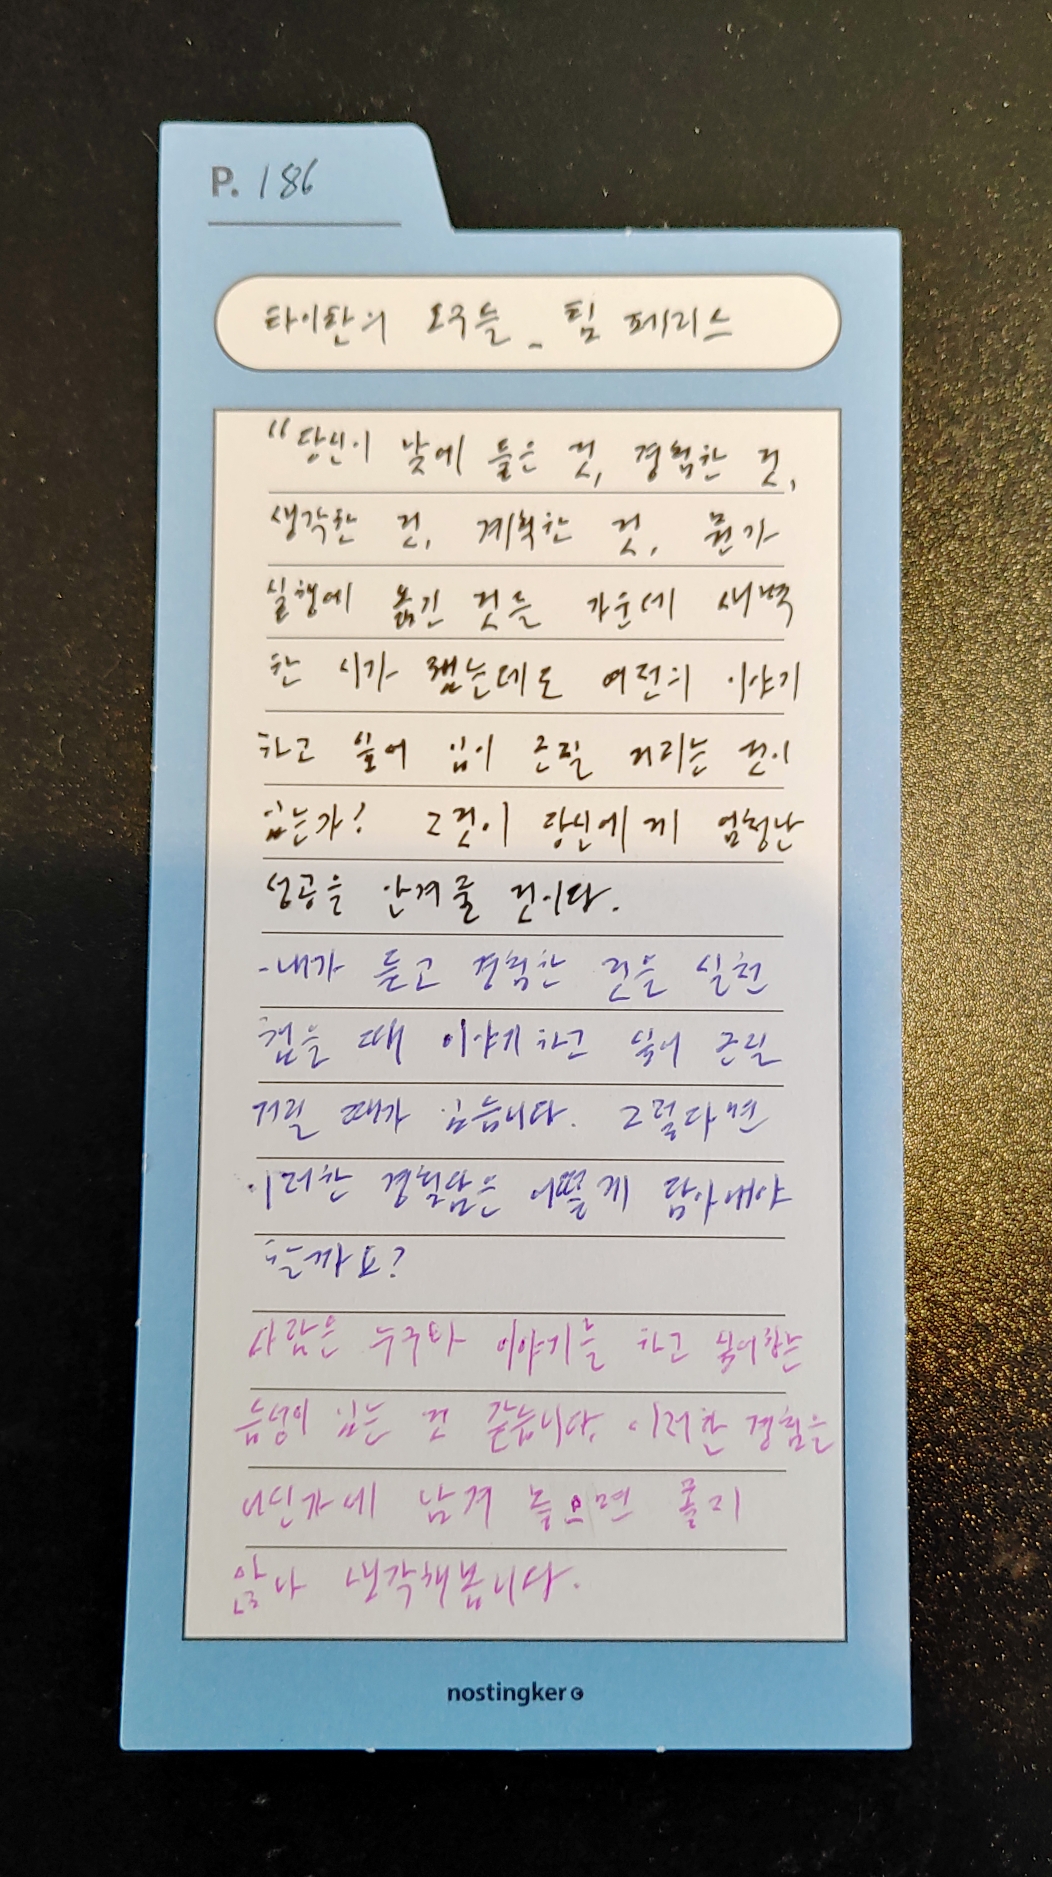 P. 186
타이탄의 도구들 _ 팀 페리스
"당신이 낮에 들은 것, 경험한 것,
생각한 것, 계획한 것, 뭔가
실행에 옮긴 것들 가운데 새벽
한 시가 됐는데도 여전히 이야기
하고 싶어 입이 근질 거리는 것이
있는가? 그것이 당신에게 엄청난
성공을 안겨줄 것이다.
-내가 듣고 경험한 것을 실천
했을 때 이야기 하고 싶어 근질
거릴 때가 있습니다. 그렇다면
이러한 경험담은 어떻게 담아내야
할까요?
사람은 누구나 이야기를 하고 싶어하는
습성이 있는 것 같습니다. 이러한 경험을
어딘가에 남겨 놓으면 좋지
않나 생각해봅니다.
nostingker